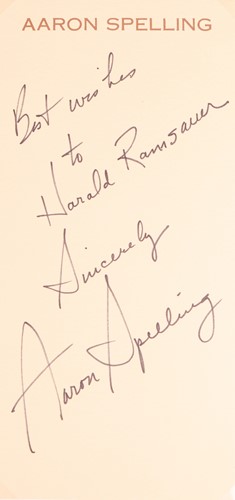 AARON SPELLING
Best wishes
to
Harald Ramsauer
Sincerely
Aaron Spelling